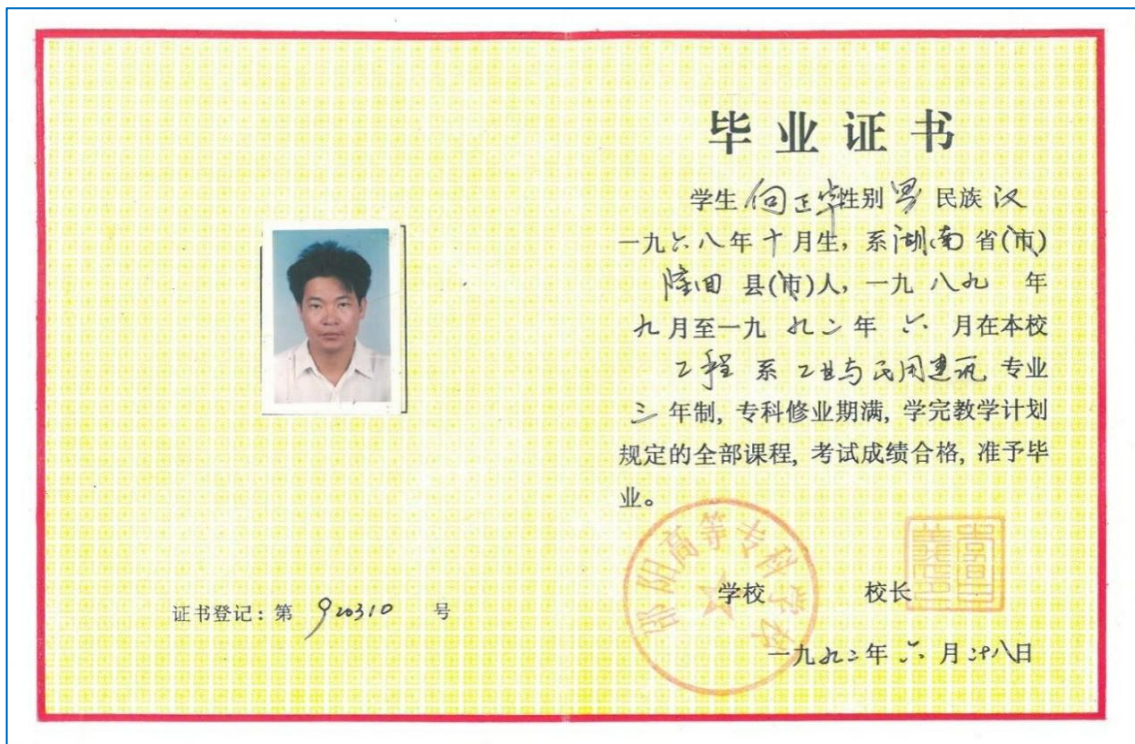 毕业证书
学生 向正华 性别 男 民族 汉
一九六八年十月生，系湖南省(市)
隆回 县(市)人，一九八九 年
九月至一九九二年 六 月在本校
工程 系 工业与民用建筑 专业
三 年制, 专科修业期满, 学完教学计划
规定的全部课程, 考试成绩合格, 准予毕
业。
邵阳高等专科学校
学校 校长
一九九二年 六 月 廿八日
证书登记：第 920310 号